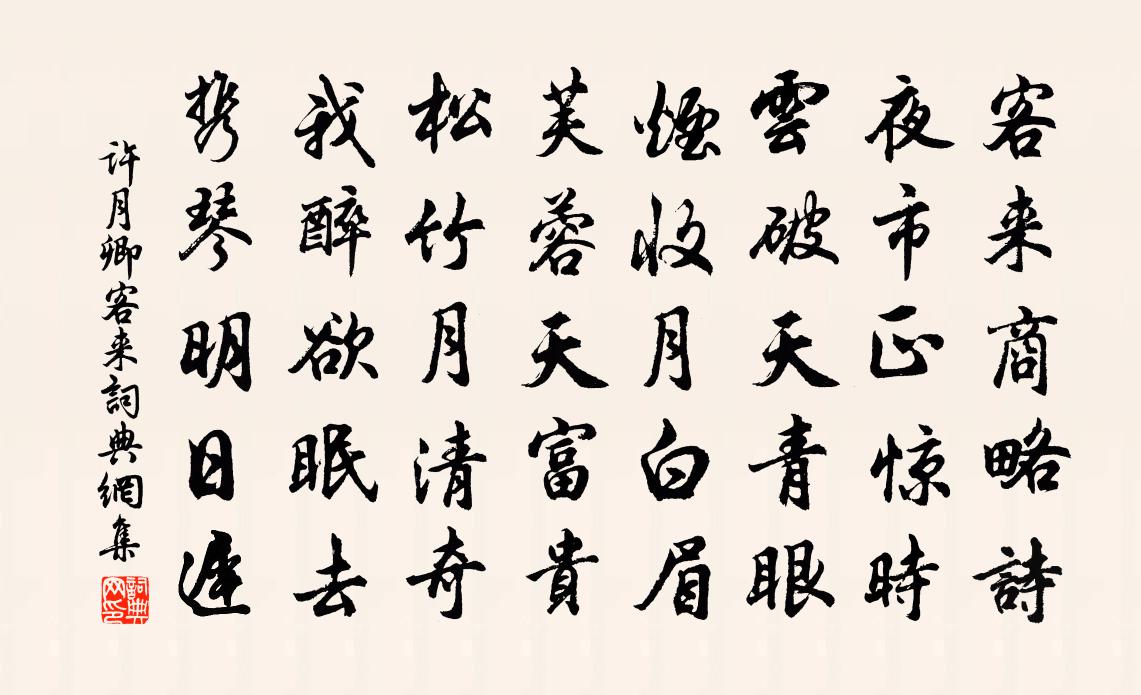 客来商略詩
夜市正惊時
雲破天青眼
煙收月白眉
芙蓉天富貴
松竹月清奇
我醉欲眠去
携琴明日遲
许月卿客来詞典網集
詞典网印